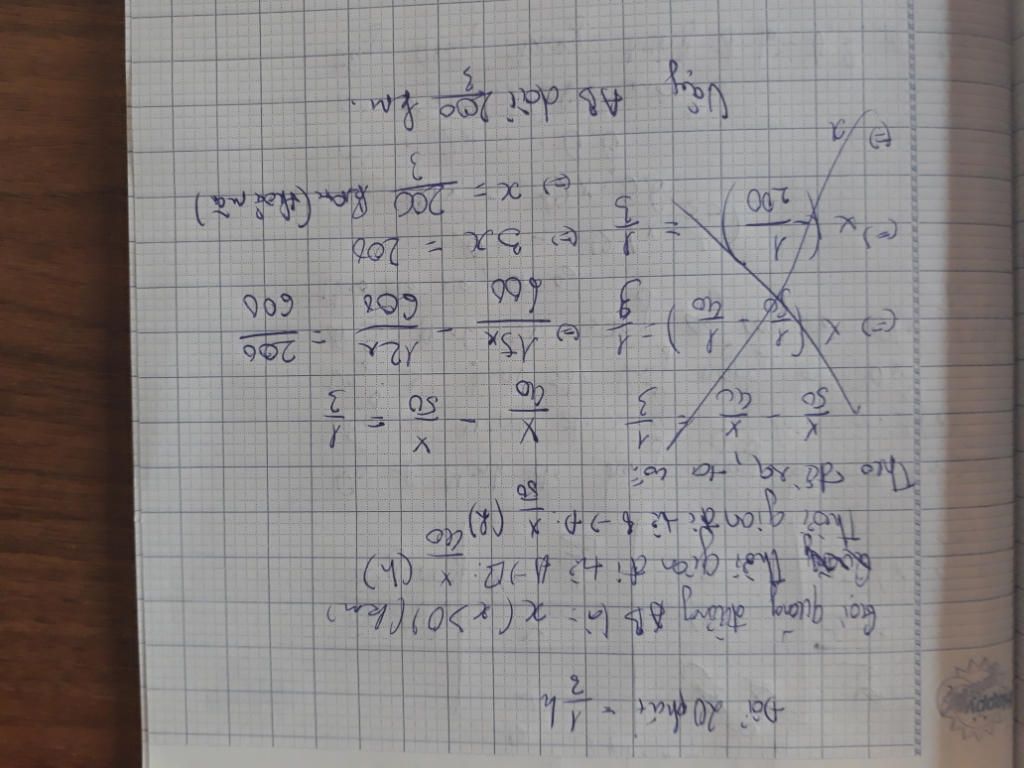 Đổi 20 phút = 1/3 h
Gọi quãng đường AB là: x (x>0) (km)
Thời gian đi từ A→B: x/40 (h)
Thời gian đi từ B→A: x/50 (h)
Theo đề ra, ta có:
x/50 - x/40 = 1/3
x/40 - x/50 = 1/3
(=) x (1/50 - 1/40) = 1/3
(=) 15x/600 - 12x/600 = 200/600
(=) x (1/200) = 1/3
(=) 3x = 200
(=) x
(=) x = 200/3 km (thoả mãn)
Vậy AB dài 200/3 km.